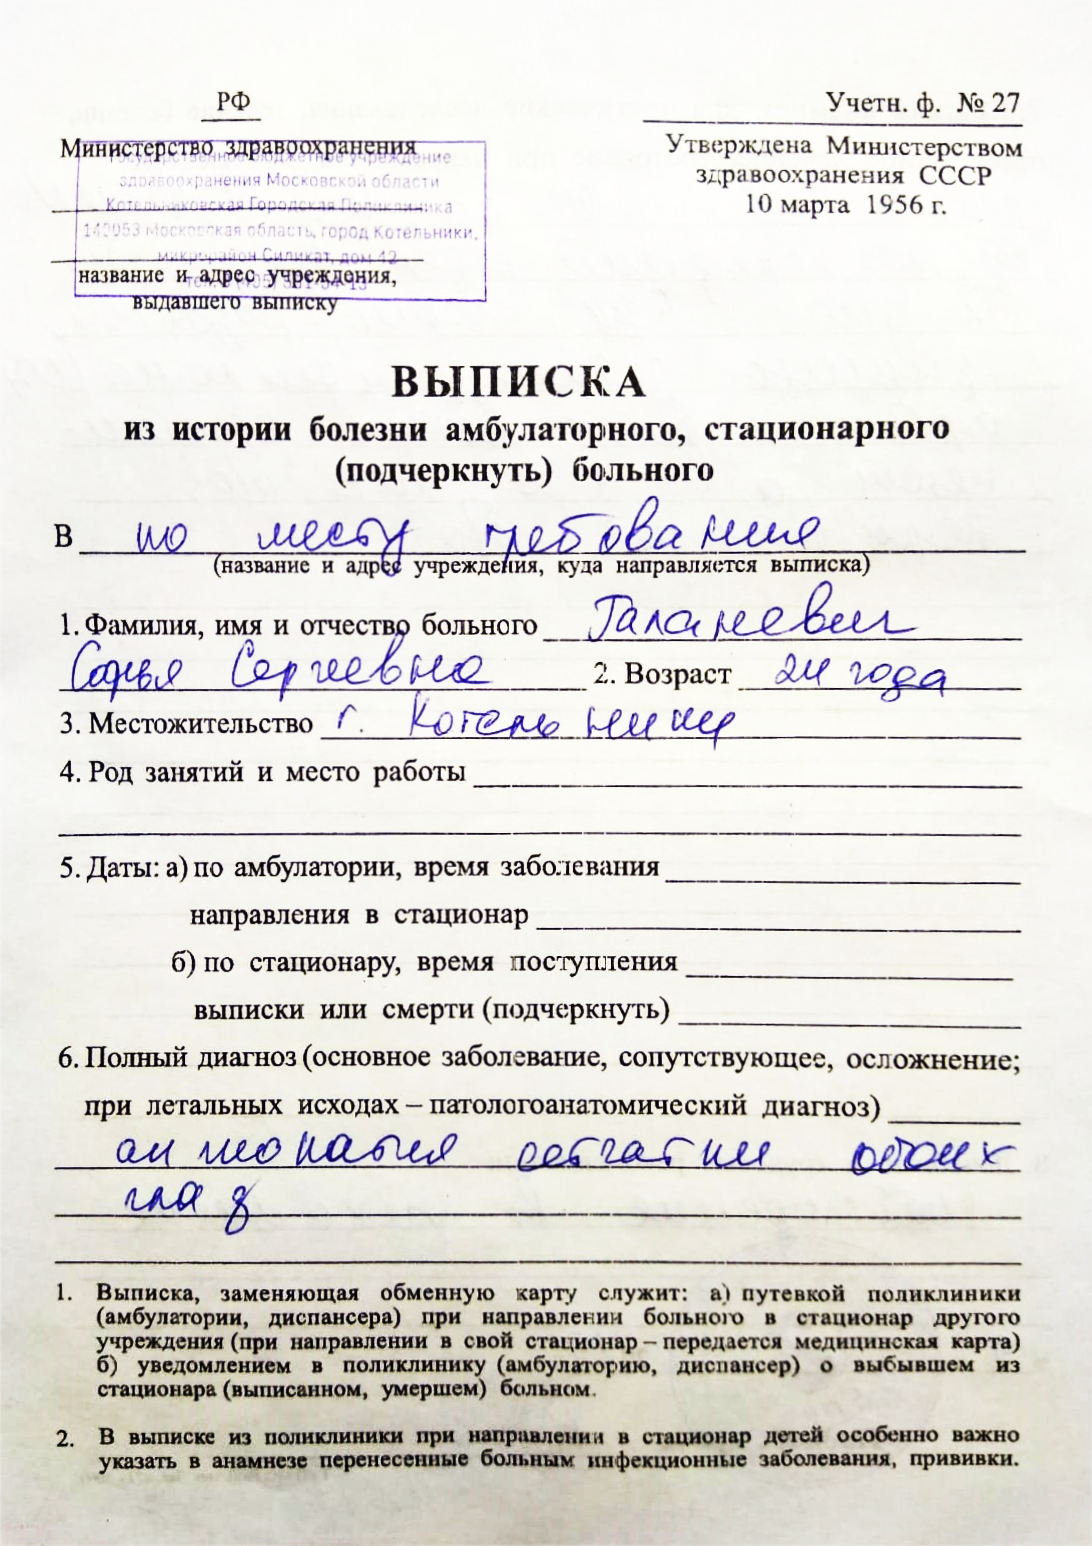 РФ
Учетн. ф. № 27
Министерство здравоохранения
Утверждена Министерством
здравоохранения СССР
10 марта 1956 г.
Государственное бюджетное учреждение
здравоохранения Московской области
Котельниковская Городская Поликлиника
140053 Московская область, город Котельники,
микрорайон Силикат, дом 42
название и адрес учреждения,
выдавшего выписку
ВЫПИСКА
из истории болезни амбулаторного, стационарного
(подчеркнуть) больного
В по месту требования
(название и адрес учреждения, куда направляется выписка)
1. Фамилия, имя и отчество больного Галаневич
Софья Сергеевна 2. Возраст 24 года
3. Местожительство г. Котельники
4. Род занятий и место работы
5. Даты: а) по амбулатории, время заболевания
направления в стационар
б) по стационару, время поступления
выписки или смерти (подчеркнуть)
6. Полный диагноз (основное заболевание, сопутствующее, осложнение;
при летальных исходах – патологоанатомический диагноз)
ангиопатия сетчатки обоих
глаз
1. Выписка, заменяющая обменную карту служит: а) путевкой поликлиники
(амбулатории, диспансера) при направлении больного в стационар другого
учреждения (при направлении в свой стационар – передается медицинская карта)
б) уведомлением в поликлинику (амбулаторию, диспансер) о выбывшем из
стационара (выписанном, умершем) больном.
2. В выписке из поликлиники при направлении в стационар детей особенно важно
указать в анамнезе перенесенные больным инфекционные заболевания, прививки.